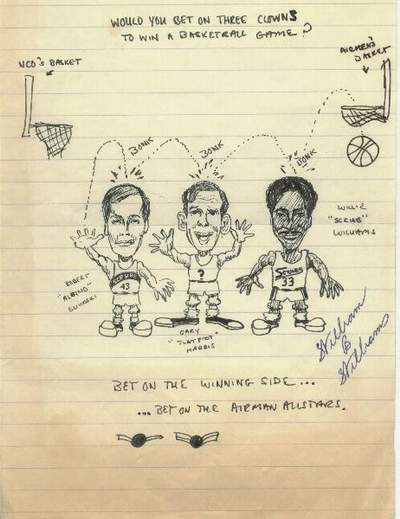 WOULD YOU BET ON THREE CLOWNS
TO WIN A BASKETBALL GAME?
NCO'S BASKET
AIRMEN'S
BASKET
BONK
BONK
BONK
WILLIE
"SCRUB"
WILLIAMS
ROBERT
"ALBINO"
43
?
SCRUBS
33
GARY
"FLATFOOT"
HARRIS
William
B
Williams
BET ON THE WINNING SIDE...
...BET ON THE AIRMAN ALLSTARS.